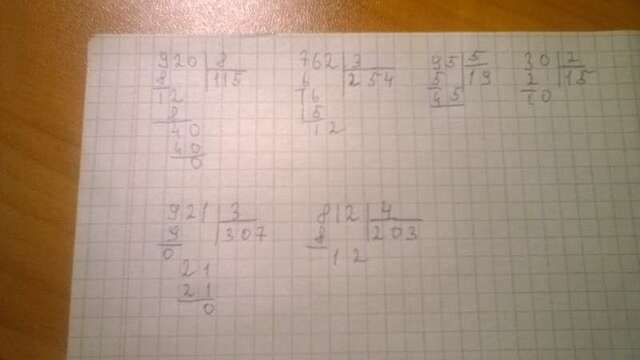 920 8
8 115
12
8
40
40
0
762 3
6 254
16
15
12
95 5
5 19
45
30 2
2 15
10
921 3
9 307
0
21
21
0
812 4
8 203
12